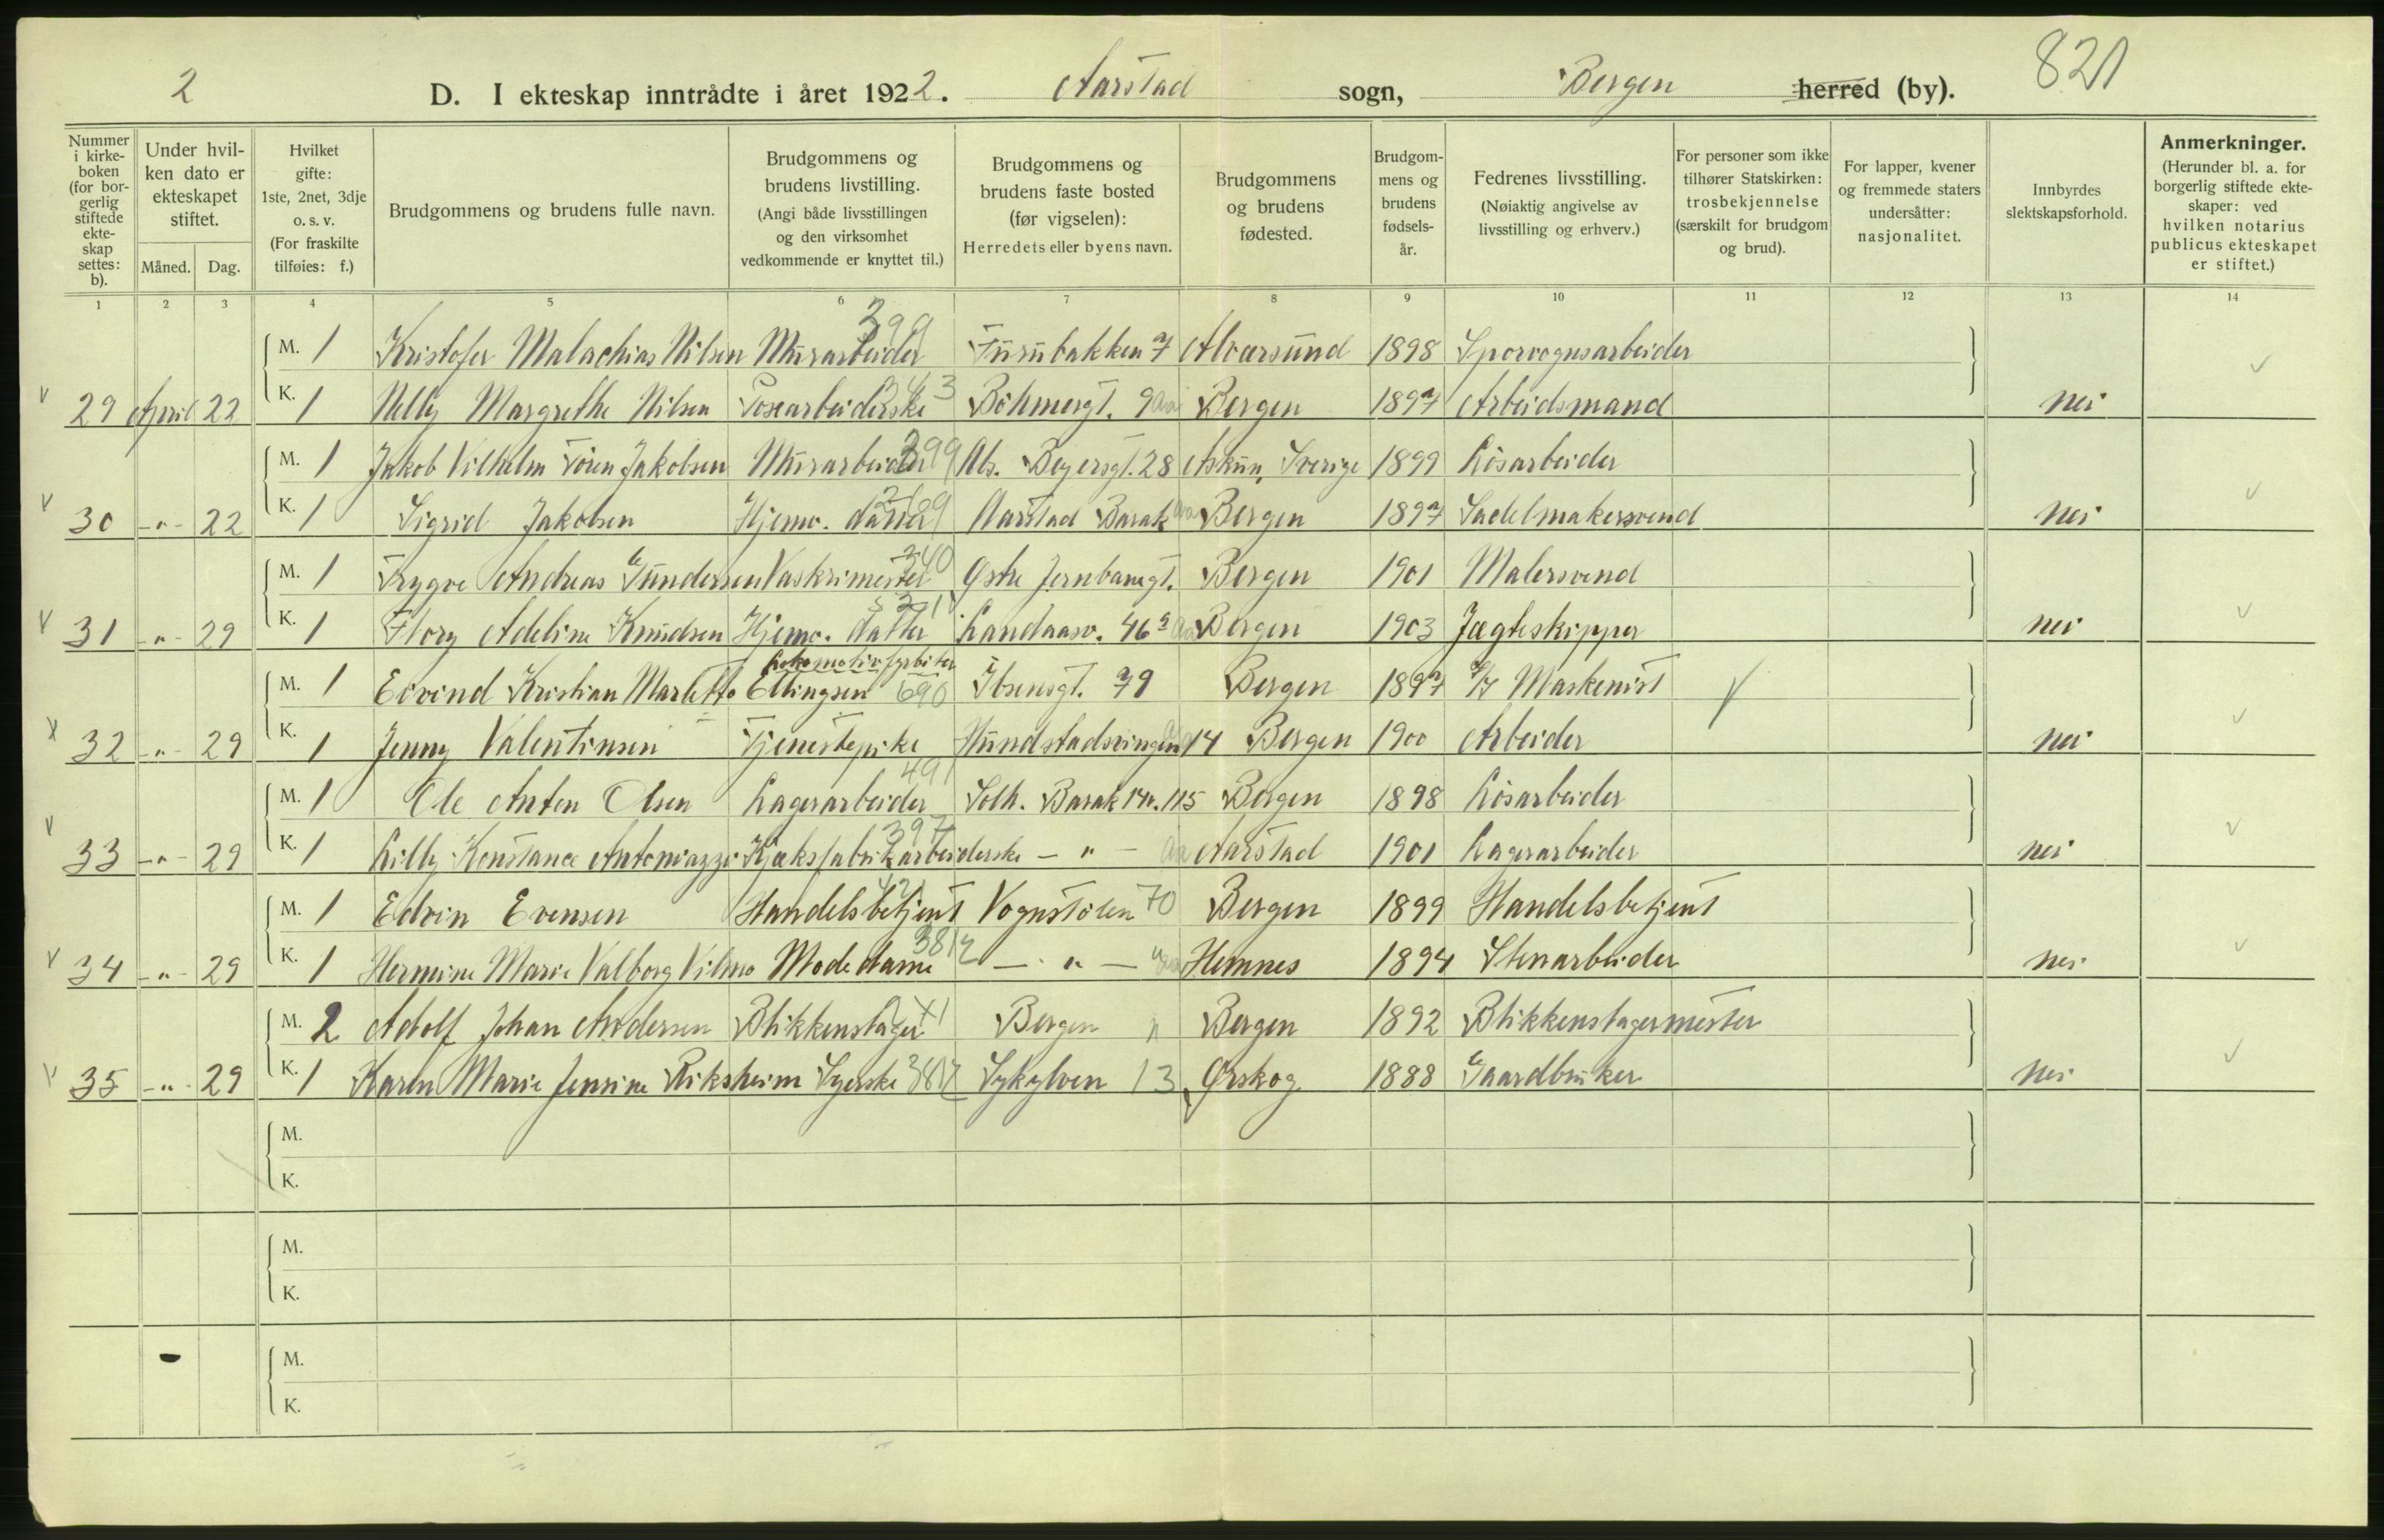 2 D. I ekteskap inntrådte i året 1922. Aarstad sogn, Bergen herred (by). 821
Nummer i kirkeboken (for borgerlig stiftede ekteskap settes: b).
Under hvilken dato er ekteskapet stiftet.
Måned. Dag.
Hvilket gifte: 1ste, 2net, 3dje o. s. v. (For fraskilte tilføies: f.)
Brudgommens og brudens fulle navn.
Brudgommens og brudens livstilling. (Angi både livsstillingen og den virksomhet vedkommende er knyttet til.)
Brudgommens og brudens faste bosted (før vigselen): Herredets eller byens navn.
Brudgommens og brudens fødested.
Brudgommens og brudens fødsels-år.
Fedrenes livsstilling. (Nøiaktig angivelse av livsstilling og erhverv.)
For personer som ikke tilhører Statskirken: trosbekjennelse (særskilt for brudgom og brud).
For lapper, kvener og fremmede staters undersåtter: nasjonalitet.
Innbyrdes slektskapsforhold.
Anmerkninger. (Herunder bl. a. for borgerlig stiftede ekteskaper: ved hvilken notarius publicus ekteskapet er stiftet.)
1 2 3 4 5 6 7 8 9 10 11 12 13 14
M. 1 Kristofer Malachias Nilsen Murarbeider 399 Furubakken 7 Alversund 1898 Sporvognsarbeider
29 April 22 K. 1 Nelly Margrethe Nilsen Posearbeiderske 343 Böhmergt. 9 aa Bergen 1897 Arbeidsmand nei
M. 1 Jakob Vilhelm Sören Jakobsen Murarbeider 399 Abs. Beyersgt. 28 Askun, Sverige 1899 Løsarbeider
30 -"- 22 K. 1 Sigrid Jakobsen Hjemv. datter Aarstad Barak aa Bergen 1897 Sadelmakersvend nei
M. 1 Trygve Andreas Gundersen Vaskrimester 340 Østre Jernbanegt. Bergen 1901 Malersvend
31 -"- 29 K. 1 Flory Adeline Knudsen Hjemv. datter Landaasv. 46a aa Bergen 1903 Jægteskipper nei
Lokomotivfyrböter
M. 1 Eivind Kristian Marletto Ellingsen 690 Ibsensgt. 79 Bergen 1897 Maskenist
32 -"- 29 K. 1 Jenny Valentinsen Tjenestepike Hundstadsvingen 14 Bergen 1900 Arbeider nei
M. 1 Ole Anton Olsen Lagerarbeider 491 Solh. Barak 14 n. 115 Bergen 1898 Løsarbeider
33 -"- 29 K. 1 Lilly Konstance Antoniazzi Kjæksfabrikarbeiderske 397 - " - aa Aarstad 1901 Lagerarbeider nei
M. 1 Edvin Evensen Handelsbetjent Vognstölen 70 Bergen 1899 Handelsbetjent
34 -"- 29 K. 1 Hermine Marie Valborg Vilmo Modedame - " - Hemnes 1894 Stenarbeider nei
M. 2 Adolf Johan Andersen Blikkenslager Bergen Bergen 1892 Blikkenslagermester
35 -"- 29 K. 1 Karen Marie Jensine Riksheim Syerske Sykylven 13 Ørskog 1888 Gaardbruker nei
M.
K.
M.
K.
M.
K.